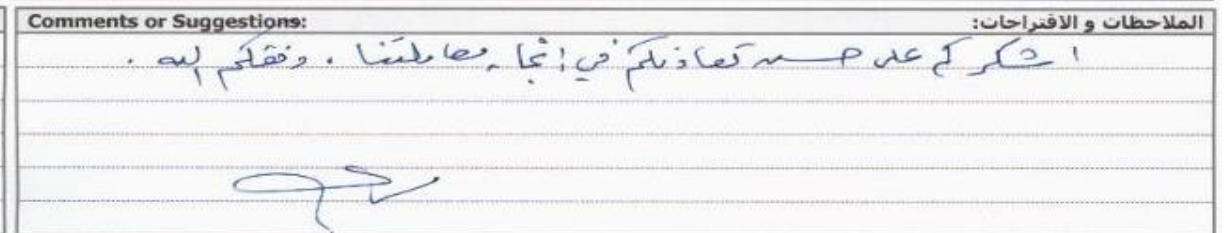 Comments or Suggestions: الملاحظات و الاقتراحات:
اشكركم على حسن تعاونكم في إنجاز معاملتنا . وفقكم الله .